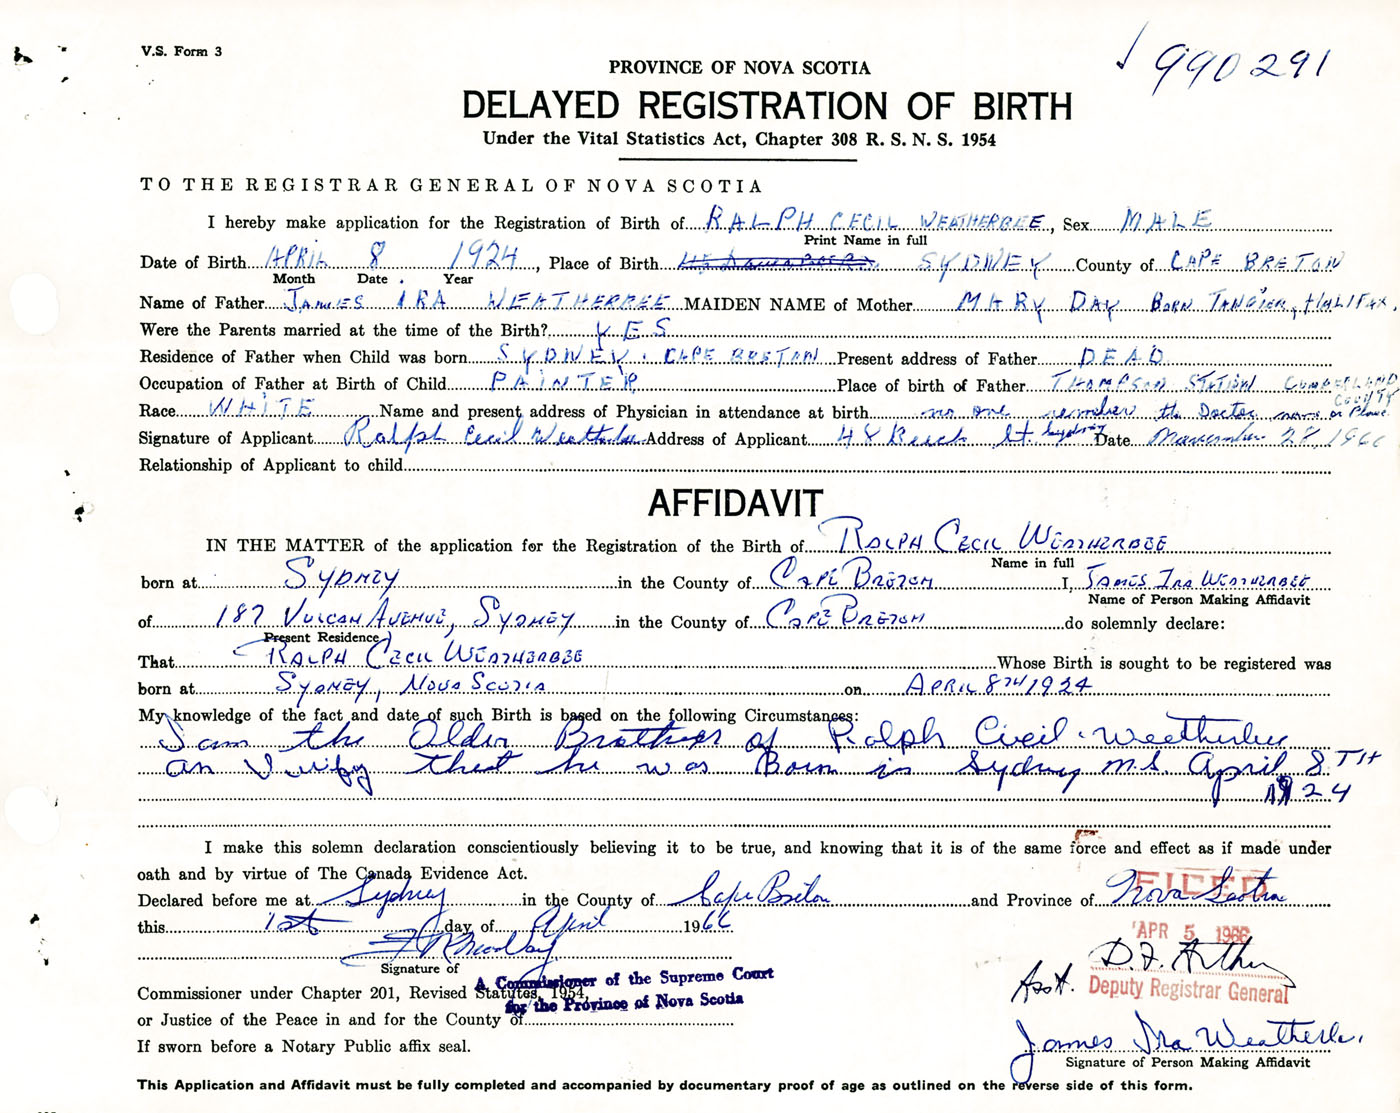 V.S. Form 3
990291
PROVINCE OF NOVA SCOTIA
DELAYED REGISTRATION OF BIRTH
Under the Vital Statistics Act, Chapter 308 R. S. N. S. 1954
TO THE REGISTRAR GENERAL OF NOVA SCOTIA
I hereby make application for the Registration of Birth of RALPH CECIL WEATHERBEE, Sex MALE
Print Name in full
Date of Birth APRIL 8 1924, Place of Birth SYDNEY County of CAPE BRETON
Month Date Year
Name of Father JAMES IRA WEATHERBEE MAIDEN NAME of Mother MARY DAY BORN TANGIER, HALIFAX.
Were the Parents married at the time of the Birth? YES
Residence of Father when Child was born SYDNEY. CAPE BRETON Present address of Father DEAD
Occupation of Father at Birth of Child PAINTER Place of birth of Father THOMPSON STATION CUMBERLAND COUNTY
Race WHITE Name and present address of Physician in attendance at birth no one remember the Doctor name or Place
Signature of Applicant Ralph Cecil Weatherbee Address of Applicant 48 Beech St Sydney Date 28, 1966
Relationship of Applicant to child
AFFIDAVIT
IN THE MATTER of the application for the Registration of the Birth of RALPH CECIL WEATHERBEE
Name in full
born at SYDNEY in the County of CAPE BRETON I, JAMES IRA WEATHERBEE
Name of Person Making Affidavit
of 187 VULCAN AVENUE, SYDNEY in the County of CAPE BRETON do solemnly declare:
Present Residence
That RALPH CECIL WEATHERBEE Whose Birth is sought to be registered was
born at SYDNEY, NOVA SCOTIA on APRIL 8TH 1924
My knowledge of the fact and date of such Birth is based on the following Circumstances:
I am the Older Brother of Ralph Cecil Weatherbee
an Verify that he was Born in Sydney N.S. April 8TH
1924
I make this solemn declaration conscientiously believing it to be true, and knowing that it is of the same force and effect as if made under
oath and by virtue of The Canada Evidence Act.
FILED
Declared before me at Sydney in the County of Cape Breton and Province of Nova Scotia
this 1st day of April 1966.
APR 5 1966
Signature of
A Commissioner of the Supreme Court
for the Province of Nova Scotia
Commissioner under Chapter 201, Revised Statutes, 1954,
Asst. Deputy Registrar General
or Justice of the Peace in and for the County of
James Ira Weatherbee
If sworn before a Notary Public affix seal.
Signature of Person Making Affidavit
This Application and Affidavit must be fully completed and accompanied by documentary proof of age as outlined on the reverse side of this form.